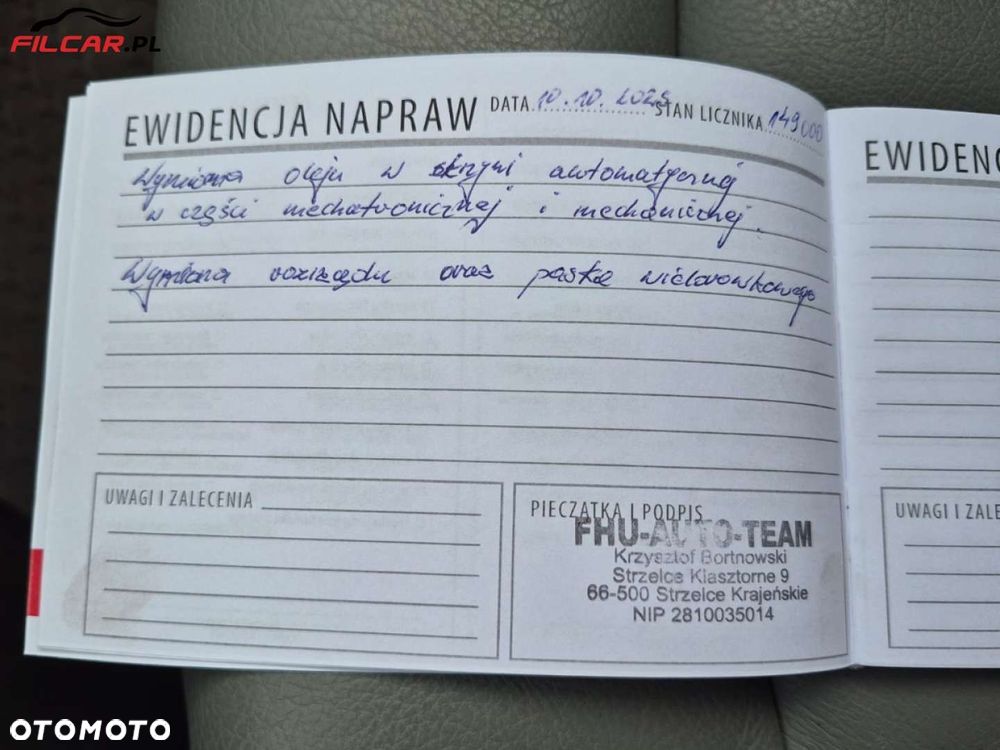 FILCAR.PL
EWIDENCJA NAPRAW DATA 10.10.2025 STAN LICZNIKA 149000
Wymiana oleju w skrzyni automatycznej
w części mechatronicznej i mechanicznej.
Wymiana rozrządu oraz paska wielorowkowego
UWAGI I ZALECENIA
PIECZĄTKA I PODPIS
FHU-AUTO-TEAM
Krzysztof Bortnowski
Strzelce Klasztorne 9
66-500 Strzelce Krajeńskie
NIP 2810035014
EWIDENC
UWAGI I ZALE
OTOMOTO